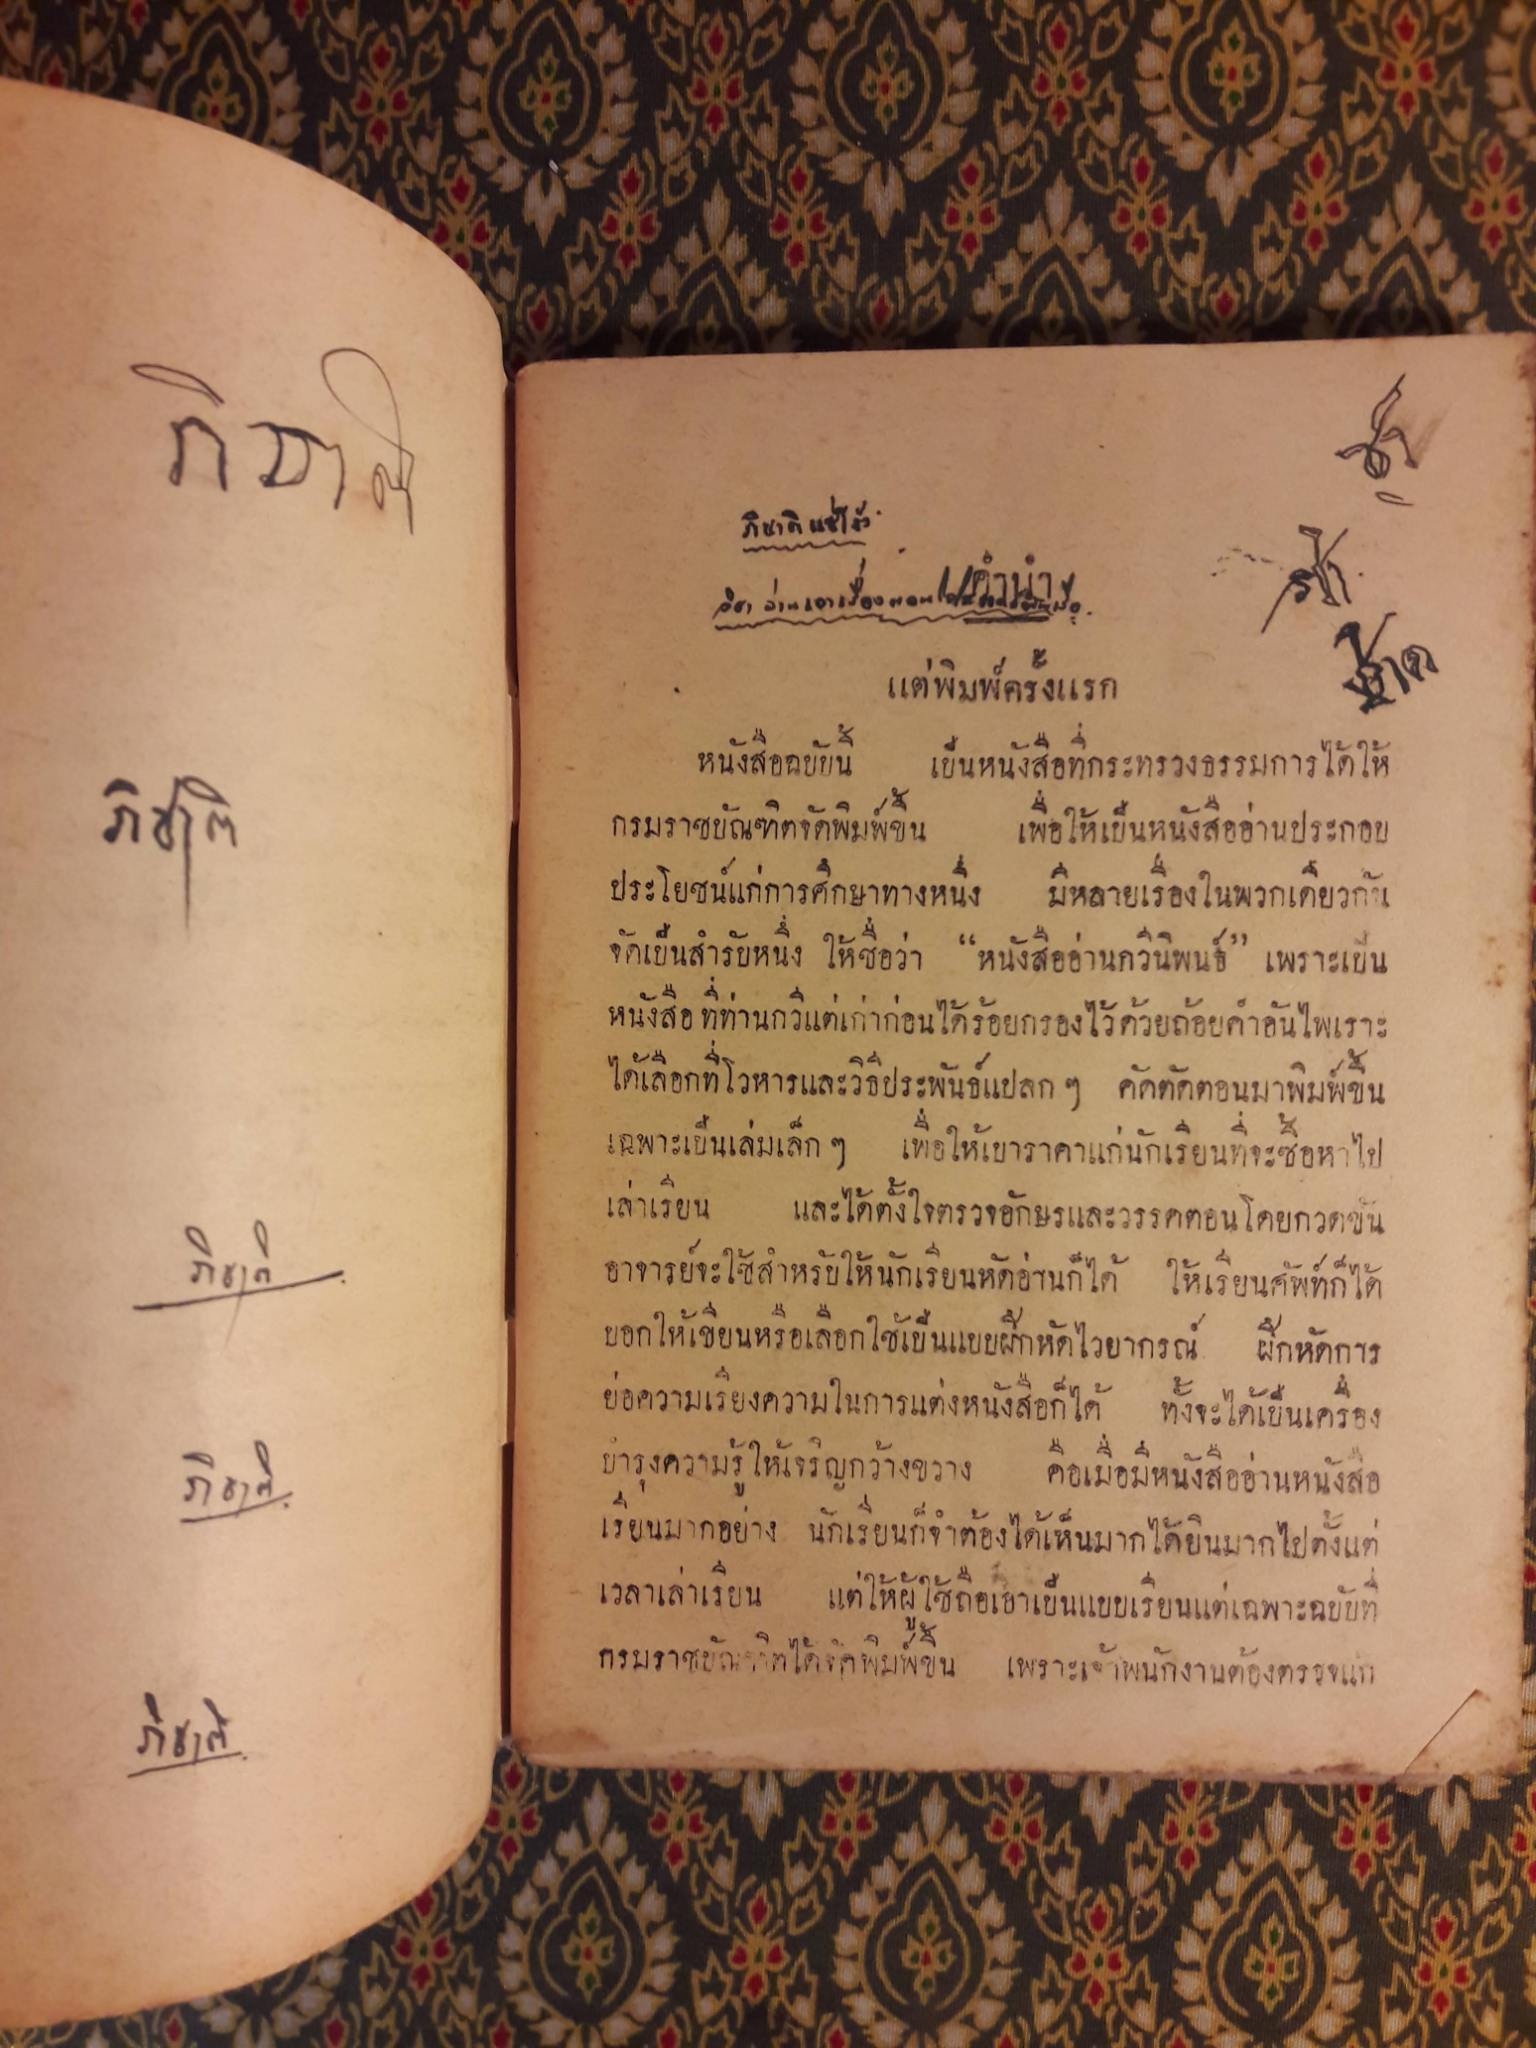 ภิชาติ
ภิชาติ
ภิชาติ
ภิชาติ
ภิชาติ
คำนำ
แต่พิมพ์ครั้งแรก
หนังสือฉบับนี้ เป็นหนังสือที่กระทรวงธรรมการได้ให้
กรมราชบัณฑิตจัดพิมพ์ขึ้น เพื่อให้เป็นหนังสืออ่านประกอบ
ประโยชน์แก่การศึกษาทางหนึ่ง มีหลายเรื่องในพวกเดียวกัน
จัดเป็นสำรับหนึ่ง ให้ชื่อว่า “หนังสืออ่านกวีนิพนธ์” เพราะเป็น
หนังสือที่ท่านกวีแต่เก่าก่อนได้ร้อยกรองไว้ด้วยถ้อยคำอันไพเราะ
ได้เลือกที่โวหารและวิธีประพันธ์แปลก ๆ คัดตัดตอนมาพิมพ์ขึ้น
เฉพาะเป็นเล่มเล็ก ๆ เพื่อให้เบาราคาแก่นักเรียนที่จะซื้อหาไป
เล่าเรียน และได้ตั้งใจตรวจอักษรและวรรคตอนโดยกวดขัน
อาจารย์จะใช้สำหรับให้นักเรียนหัดอ่านก็ได้ ให้เรียนศัพท์ก็ได้
บอกให้เขียนหรือเลือกใช้เป็นแบบฝึกหัดไวยากรณ์ ฝึกหัดการ
ย่อความเรียงความในการแต่งหนังสือก็ได้ ทั้งจะได้เป็นเครื่อง
บำรุงความรู้ให้เจริญกว้างขวาง คือเมื่อมีหนังสืออ่านหนังสือ
เรียนมากอย่าง นักเรียนก็จำต้องได้เห็นมากได้ยินมากไปตั้งแต่
เวลาเล่าเรียน แต่ให้ผู้ใช้ถือเอาเป็นแบบเรียนแต่เฉพาะฉบับที่
กรมราชบัณฑิตได้จัดพิมพ์ขึ้น เพราะเจ้าพนักงานต้องตรวจแก้